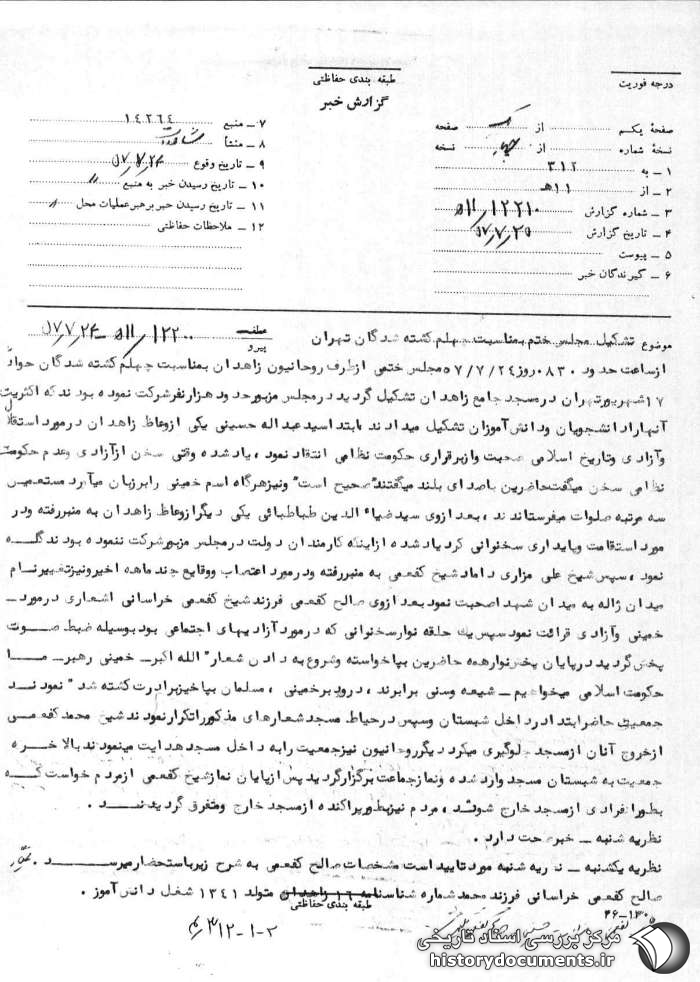 درجه فوریت
طبقه بندی حفاظتی
گزارش خبر
صفحهٔ یکم از صفحه
نسخهٔ شماره از نسخه
۱ ـ به ۳۱۲
۲ ـ از ۱۱ه‍
۳ ـ شماره گزارش ۱۲۲۱۰/ه‍۱۱
۴ ـ تاریخ گزارش ۵۷/۷/۲۵
۵ ـ پیوست
۶ ـ گیرندگان خبر
۷ ـ منبع ۱۴۲۶۴
۸ ـ منشأ
۹ ـ تاریخ وقوع ۵۷/۷/۲۴
۱۰ ـ تاریخ رسیدن خبر به منبع "
۱۱ ـ تاریخ رسیدن خبر برهبر عملیات محل "
۱۲ ـ ملاحظات حفاظتی
موضوع تشکیل مجلس ختم بمناسبت چهلم کشته شدگان تهران عطف پیرو ۱۲۲۰۰/ه‍۱۱ ـ ۵۷/۷/۲۴
از ساعت حدود ۰۸۳۰ روز ۵۷/۷/۲۴ مجلس ختمی از طرف روحانیون زاهدان بمناسبت چهلم کشته شدگان حوادث
۱۷ شهریور تهران در مسجد جامع زاهدان تشکیل گردید در مجلس مزبور حدود هزار نفر شرکت نموده بودند که اکثریت
آنها را دانشجویان و دانش آموزان تشکیل میدادند ، ابتدا سید عبداله حسینی یکی از وعاظ زاهدان در مورد استقلال
و آزادی و تاریخ اسلامی صحبت و از برقراری حکومت نظامی انتقاد نمود ، یاد شده وقتی سخن از آزادی و عدم حکومت
نظامی سخن میگفت حاضرین با صدای بلند میگفتند "صحیح است" و نیز هرگاه اسم خمینی را بر زبان میآورد مستعمین
سه مرتبه صلوات میفرستاندند ، بعد از وی سید ضیاء الدین طباطبائی یکی دیگر از وعاظ زاهدان به منبر رفته و در
مورد استقامت و پایداری سخنرانی کرد یاد شده از اینکه کارمندان دولت در مجلس مزبور شرکت ننموده بودند گله
نمود ، سپس شیخ علی مزاری داماد شیخ کفعمی به منبر رفته و در مورد اعتصاب و وقایع چند ماهه اخیر و نیز تغییر نام
میدان ژاله به میدان شهدا صحبت نمود بعد از وی صالح کفعمی فرزند شیخ کفعمی خراسانی اشعاری در مورد ـ
خمینی و آزادی قرائت نمود سپس یك حلقه نوار سخنرانی که در مورد آزادیهای اجتماعی بود بوسیله ضبط صوت
پخش گردید در پایان پخش نوار همه حاضرین بپا خواسته و شروع به دادن شعار "الله اکبر ـ خمینی رهبر ـ ما
حکومت اسلامی میخواهیم ـ شیعه و سنی برابرند ، درود بر خمینی ، مسلمان بپا خیز برادرت کشته شد" نمودند
جمعیت حاضر ابتدا در داخل شبستان و سپس در حیاط مسجد شعارهای مذکور را تکرار نمودند شیخ محمد کفعمی
از خروج آنان از مسجد جلوگیری میکرد دیگر روحانیون نیز جمعیت را به داخل مسجد هدایت مینمودند بالاخره
جمعیت به شبستان مسجد وارد شده و نماز جماعت برگزار گردید پس از پایان نماز شیخ کفعمی از مردم خواست که
بطور انفرادی از مسجد خارج شوند ، مردم نیز بطور پراکنده از مسجد خارج و متفرق گردیدند .
نظریه شنبه ـ خبر صحت دارد .
نظریه یکشنبه ـ نظریه شنبه مورد تایید است مشخصات صالح کفعمی به شرح زیر باستحضار میرسد .
صالح کفعمی خراسانی فرزند محمد شماره شناسنامه ۱۶ زاهدان متولد ۱۳۴۱ شغل دانش آموز .
طبقه بندی حفاظتی
۳۱۲-۱-۲
مرکز بررسی اسناد تاریخی
historydocuments.ir